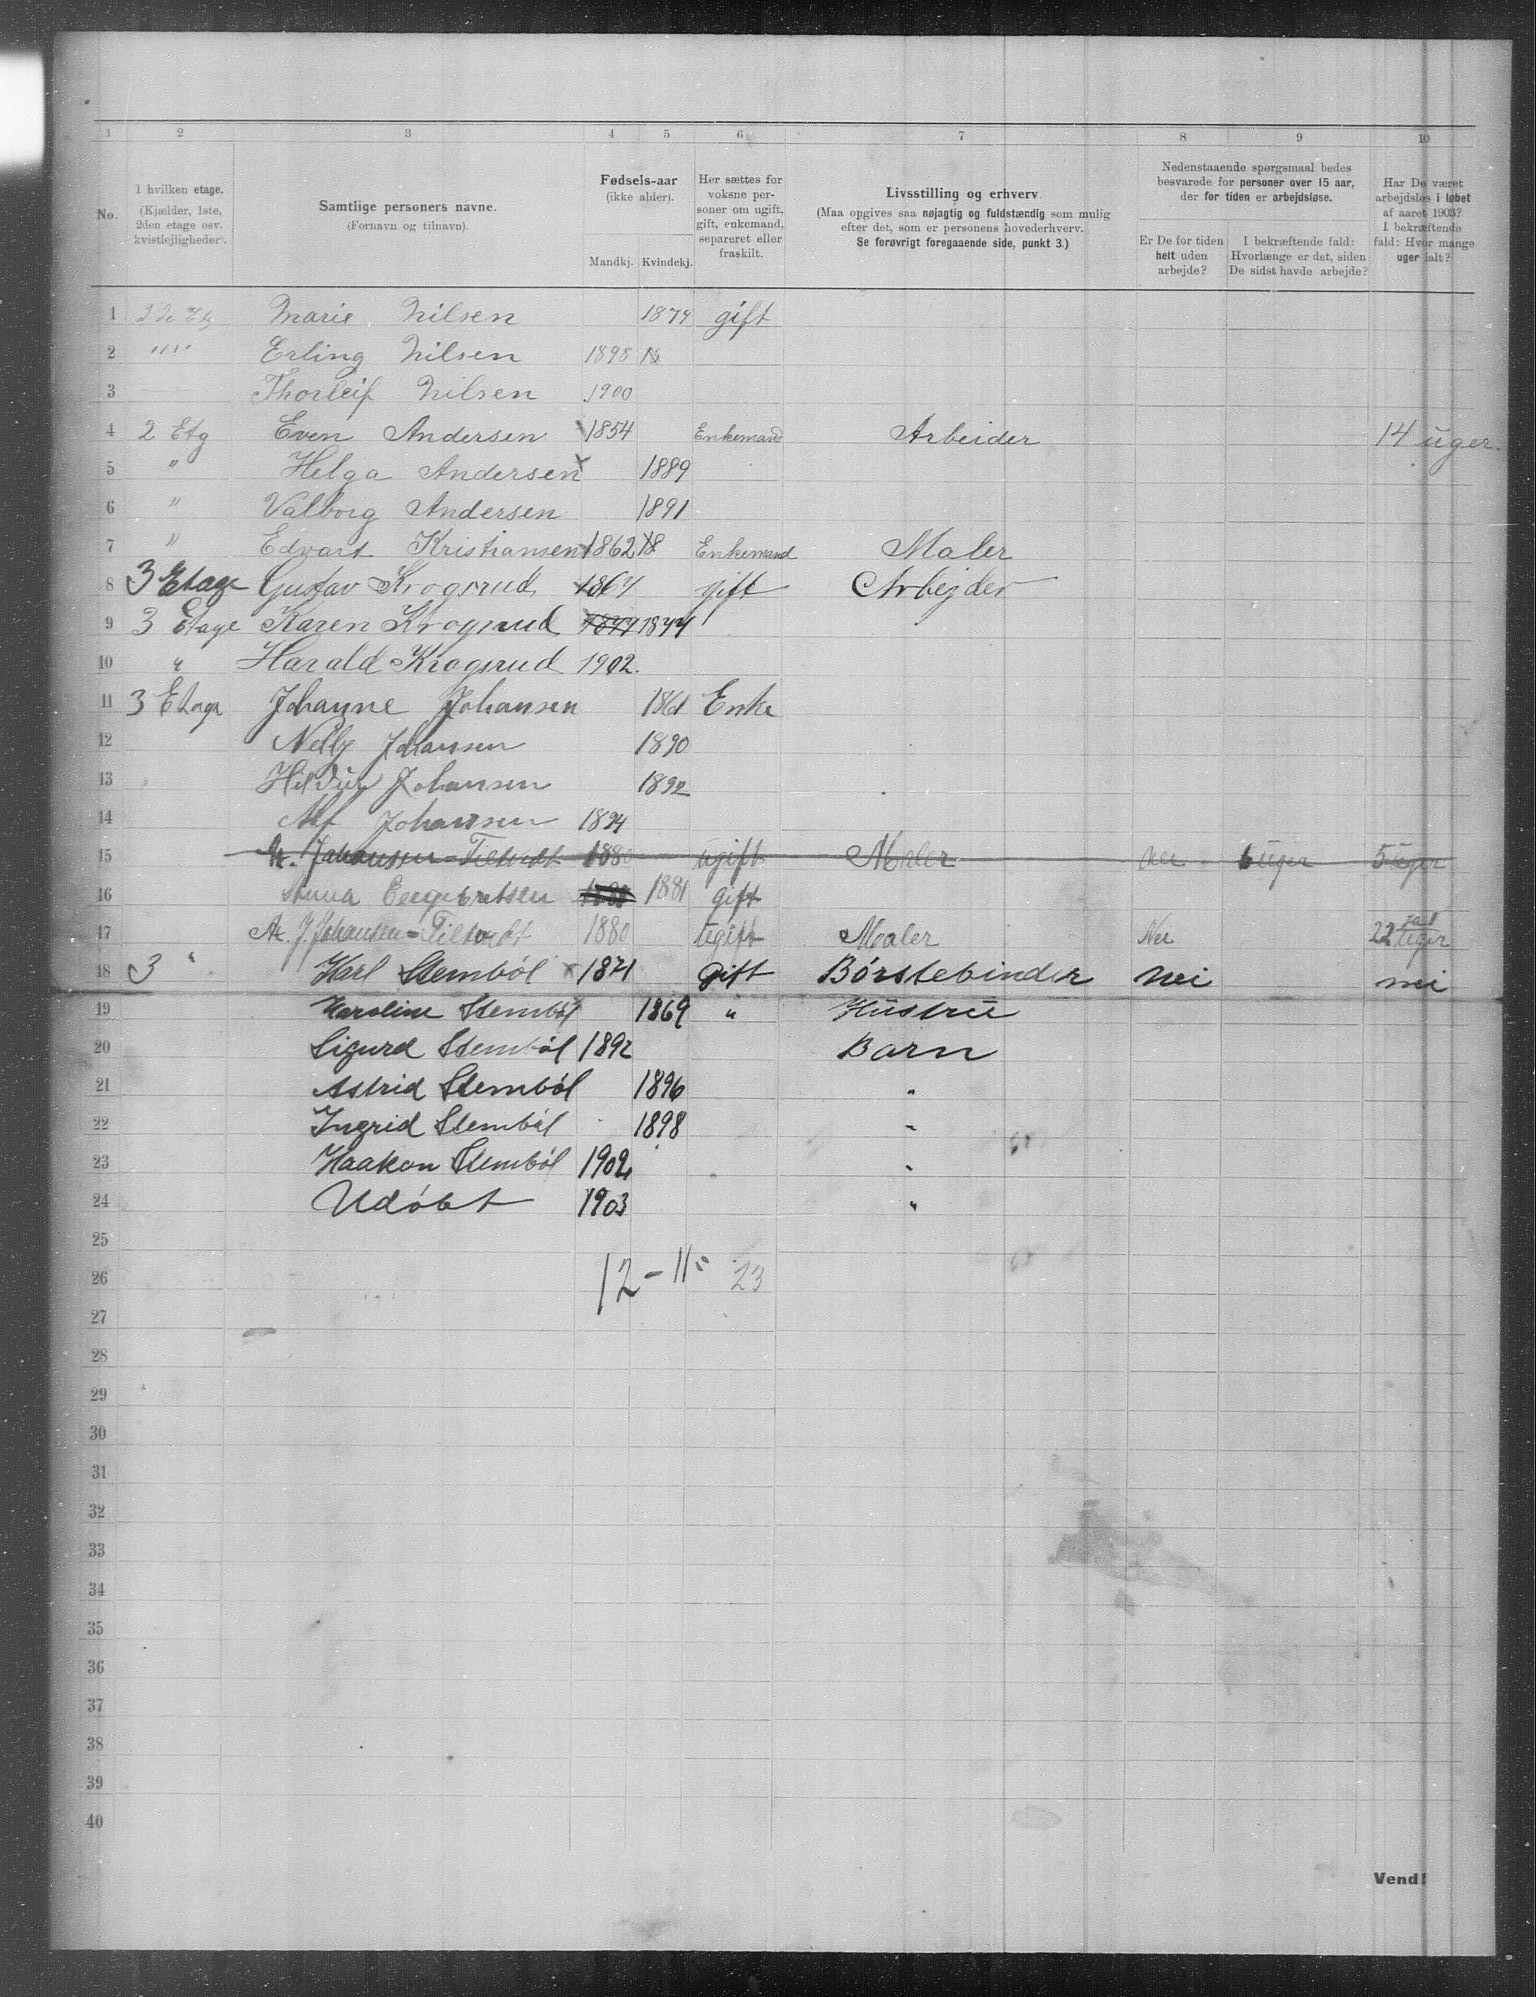 1 2 3 4 5 6 7 8 9 10
No.
I hvilken etage. (Kjælder, 1ste, 2den etage osv. kvistlejligheder).
Samtlige personers navne. (Fornavn og tilnavn).
Fødsels-aar (ikke alder). Mandkj. Kvindekj.
Her sættes for voksne personer om ugift, gift, enkemand, separeret eller fraskilt.
Livsstilling og erhverv. (Maa opgives saa nøjagtig og fuldstændig som mulig efter det, som er personens hovederhverv. Se forøvrigt foregaaende side, punkt 3.)
Nedenstaaende spørgsmaal bedes besvarede for personer over 15 aar, der for tiden er arbejdsløse.
Er De for tiden helt uden arbejde?
I bekræftende fald: Hvorlænge er det, siden De sidst havde arbejde?
Har De været arbejdsløs i løbet af aaret 1903? I bekræftende fald: Hvor mange uger ialt?
1 Marie Nilsen 1879 gift
2 " " Erling Nilsen 1898
3 Thorleif Nilsen 1900
4 2 Etg Even Andersen 1854 Enkemand Arbeider 14 uger.
5 " Helga Andersen 1889
6 " Valborg Andersen 1891
7 " Edvart Kristiansen 1862 18 Enkemand Maler
8 3 Etage Gustav Krogsrud 1867 gift Arbejder
9 3 Etage Karen Krogsrud 1877 1877
10 " Harald Krogsrud 1902.
11 3 Etage Johanne Johansen 1861 Enke
12 Nelly Johansen 1890
13 Hildur Johansen 1892
14 Alf Johansen 1894
15 Johansen- 1880 ugift Maler nei 6 uger 5 uger
16 Anna Engebretsen 1881 gift
17 J. Johansen- 1880 ugift Maler Nei 22 uger
18 3 " Karl Stembøl 1871 gift Børstebinder nei nei
19 Karoline Stembøl 1869 " Hustru
20 Sigurd Stembøl 1892 Barn
21 Astrid Stembøl 1896 "
22 Ingrid Stembøl 1898 "
23 Haakon Stembøl 1902 "
24 Udøbt 1903 "
25
26 12 - 11 = 23
27
28
29
30
31
32
33
34
35
36
37
38
39
40
Vend!